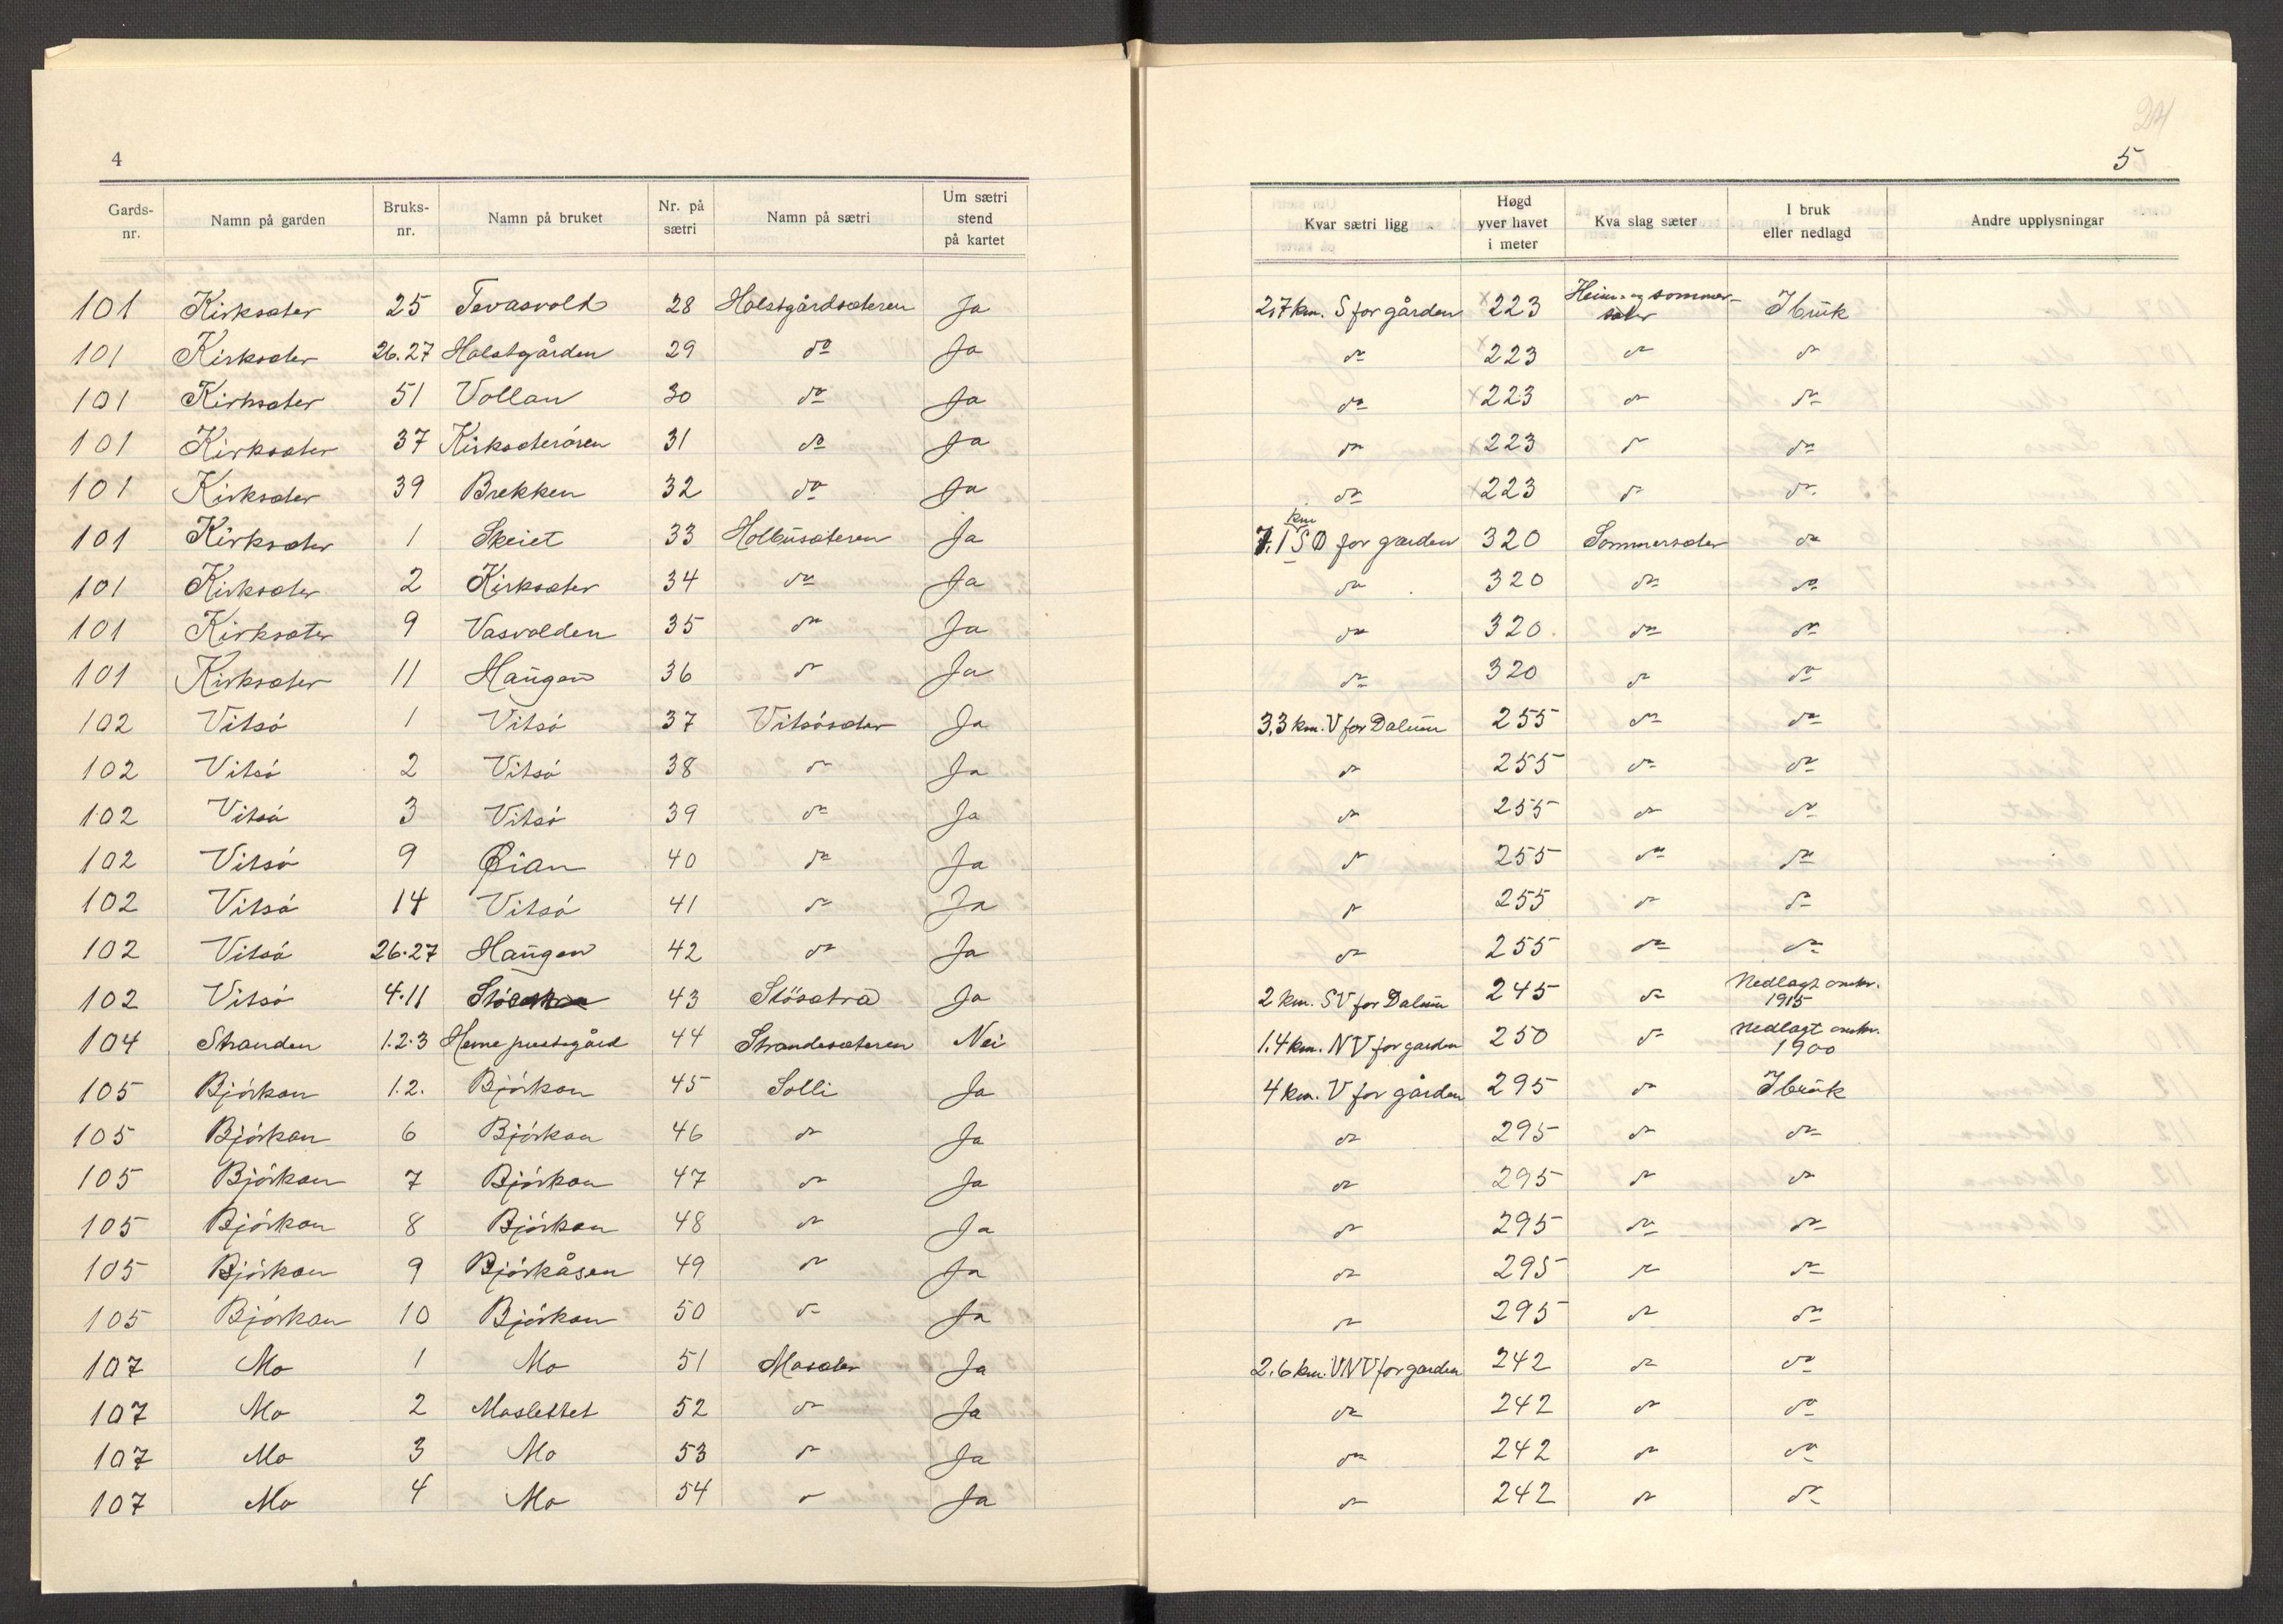 4
Gards-nr. Namn på garden Bruks-nr. Namn på bruket Nr. på sætri Namn på sætri Um sætri stend på kartet
101 Kirksæter 25 Tevasvold 28 Holstgårdsæteren Ja
101 Kirksæter 26.27 Holstgården 29 do Ja
101 Kirksæter 51 Vollan 30 do Ja
101 Kirksæter 37 Kirksæterøren 31 do Ja
101 Kirksæter 39 Brekken 32 do Ja
101 Kirksæter 1 Skeiet 33 Holbusæteren Ja
101 Kirksæter 2 Kirksæter 34 do Ja
101 Kirksæter 9 Vasvolden 35 do Ja
101 Kirksæter 11 Haugen 36 do Ja
102 Vitsø 1 Vitsø 37 Vitsøsæter Ja
102 Vitsø 2 Vitsø 38 do Ja
102 Vitsø 3 Vitsø 39 do Ja
102 Vitsø 9 Øian 40 do Ja
102 Vitsø 14 Vitsø 41 do Ja
102 Vitsø 26.27 Haugen 42 do Ja
102 Vitsø 4.11 43 Stösætra Ja
104 Stranden 1.2.3 Hemne prestegård 44 Strandesæteren Nei
105 Bjórkan 1.2. Bjórkan 45 Solli Ja
105 Bjórkan 6 Bjórkan 46 do Ja
105 Bjórkan 7 Bjórkan 47 do Ja
105 Bjórkan 8 Bjórkan 48 do Ja
105 Bjórkan 9 Bjórkåsen 49 do Ja
105 Bjórkan 10 Bjórkan 50 do Ja
107 Mo 1 Mo 51 Mosæter Ja
107 Mo 2 Moslettet 52 do Ja
107 Mo 3 Mo 53 do Ja
107 Mo 4 Mo 54 do Ja
24
5
Kvar sætri ligg Høgd yver havet i meter Kva slag sæter I bruk eller nedlagd Andre upplysningar
2,7 km. S for gården x 223 Heim- og sommer-sæter I bruk
do x 223 do do
do x 223 do do
do x 223 do do
do x 223 do do
7.1 km SØ for garden 320 Sommersæter do
do 320 do do
do 320 do do
do 320 do do
3,3 km. V for Dalum 255 do do
do 255 do do
do 255 do do
do 255 do do
do 255 do do
do 255 do do
2 km. SV for Dalum 245 do Nedlagt omkr. 1915
1.4 km. NV for garden 250 do Nedlagt omkr. 1900
4 km. V for gården 295 do I bruk
do 295 do do
do 295 do do
do 295 do do
do 295 do do
do 295 do do
2.6 km. VNV for garden 242 do do
do 242 do do
do 242 do do
do 242 do do